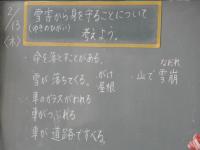 2/13
〈木〉
雪害から身を守ることについて
(ゆきのひがい)
考えよう。
・命を落とすことがある。
・雪が落ちてくる。
がけ
屋根
・山で雪崩
なだれ
・車のガラスがわれる
・車がつぶれる
・車が道路ですべる。